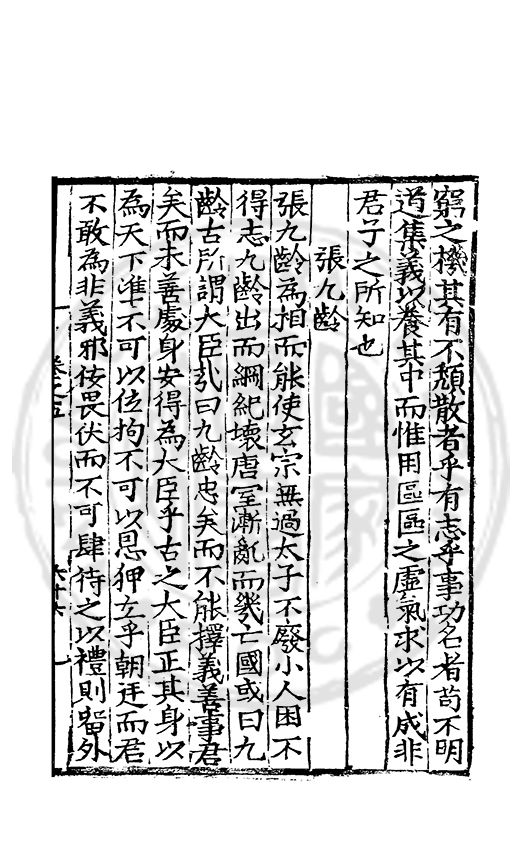 窮之機其有不頹散者乎有志乎事功名者苟不明
道集義以養其中而惟用區區之虛氣求以有成非
君子之所知也
張九齡
張九齡為相而能使玄宗無過太子不廢小人困不
得志九齡出而綱紀壞唐室漸亂而幾亡國或曰九
齡古所謂大臣㢤曰九齡忠矣而不能擇義善事君
矣而未善處身安得為大臣乎古之大臣正其身以
為天下準不可以位拘不可以恩狎立乎朝廷而君
不敢為非義邪佞畏伏而不可肆待之以禮則留外
卷之五